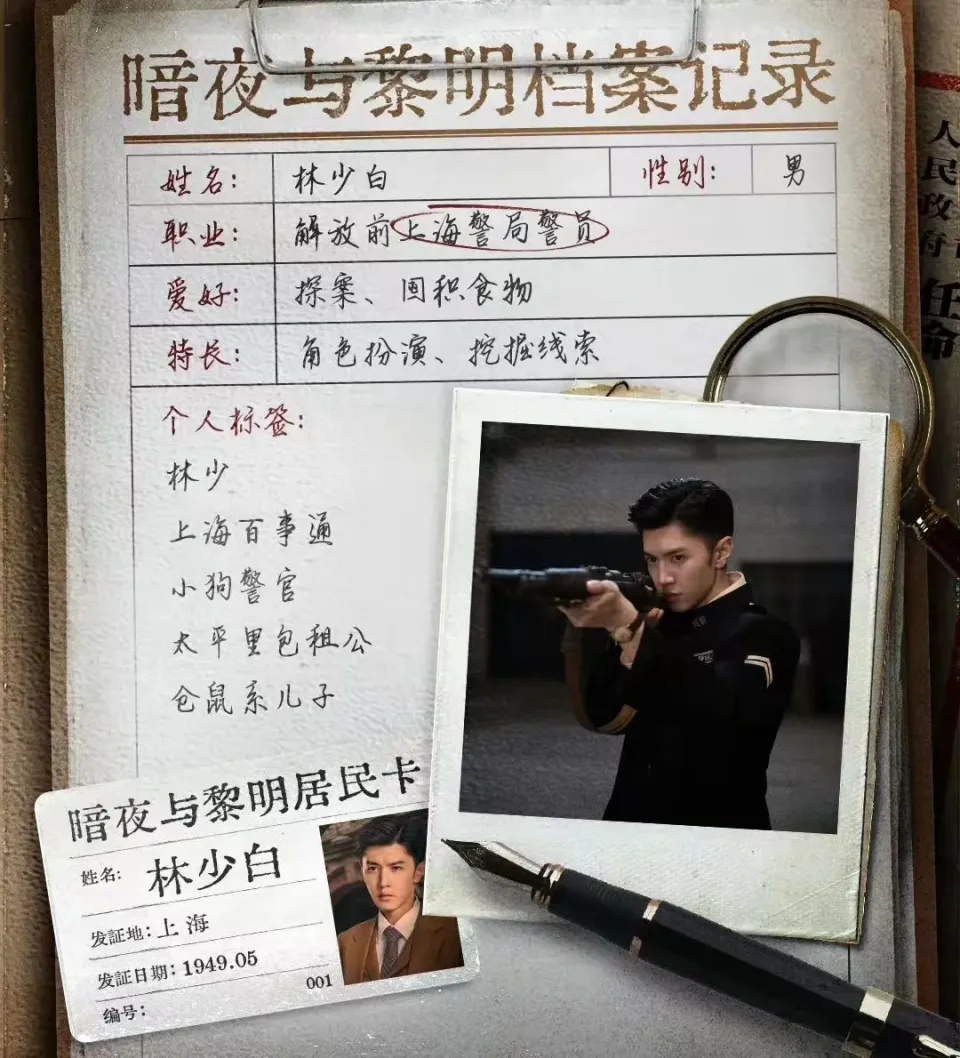 暗夜与黎明档案记录
姓名: 林少白 性别: 男
职业: 解放前上海警局警员
爱好: 探案、囤积食物
特长: 角色扮演、挖掘线索
个人标签:
林少
上海百事通
小狗警官
太平里包租公
仓鼠系儿子
暗夜与黎明居民卡
姓名: 林少白
发証地: 上海
发证日期: 1949.05
编号: 001
人民政府
任命